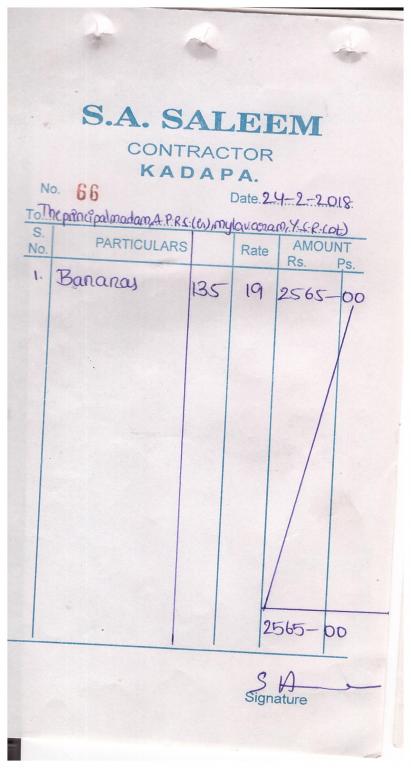 S.A. SALEEM
CONTRACTOR
KADAPA.
No. 66 Date. 24-2-2018
To The principal madam, A.P.R.S.(U), mylavaram, Y.S.R.(dt)
S. No. PARTICULARS Rate AMOUNT Rs. Ps.
1. Bananas 135 19 2565-00
2565-00
Signature